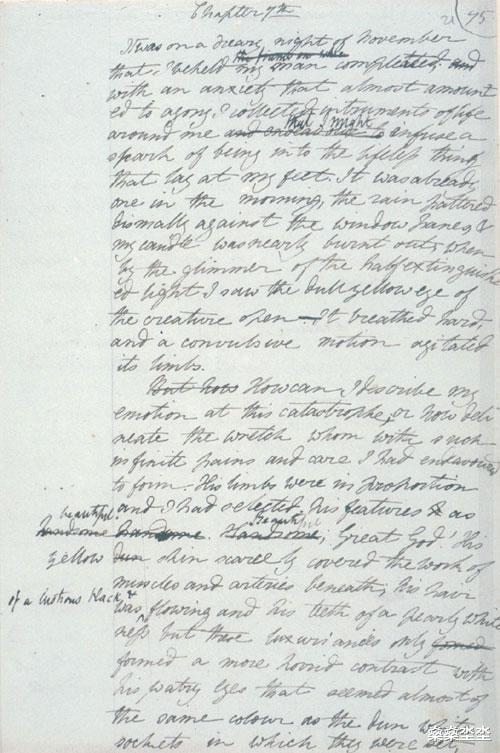 Chapter 7th
21 95
It was on a dreary night of November
the frame on whic
that I beheld my man compleated and
with an anxiety that almost amount
ed to agony, I collected instruments of life
that I might
around me and endeavour to infuse a
spark of being into the lifeless thing
that lay at my feet. It was already
one in the morning, the rain pattered
dismally against the window panes, &
my candle was nearly burnt out, when
by the glimmer of the half extinguish
ed light I saw the dull yellow eye of
the creature open — It breathed hard,
and a convulsive motion agitated
its limbs.
But how How can I describe my
emotion at this catastrophe; or how deli
neate the wretch whom with such
infinite pains and care I had endeavoured
to form. His limbs were in proportion
and I had selected his features & as
beautiful. Beautiful
handsome handsome. Handsome; Great God! His
yellow dun skin scarcely covered the work of
muscles and arteries beneath; his hair
of a lustrous black, &
was flowing and his teeth of a pearly white
ness but these luxuriances only formed
formed a more horrid contrast with
his watry eyes that seemed almost of
the same colour as the dun white
sockets in which they were set